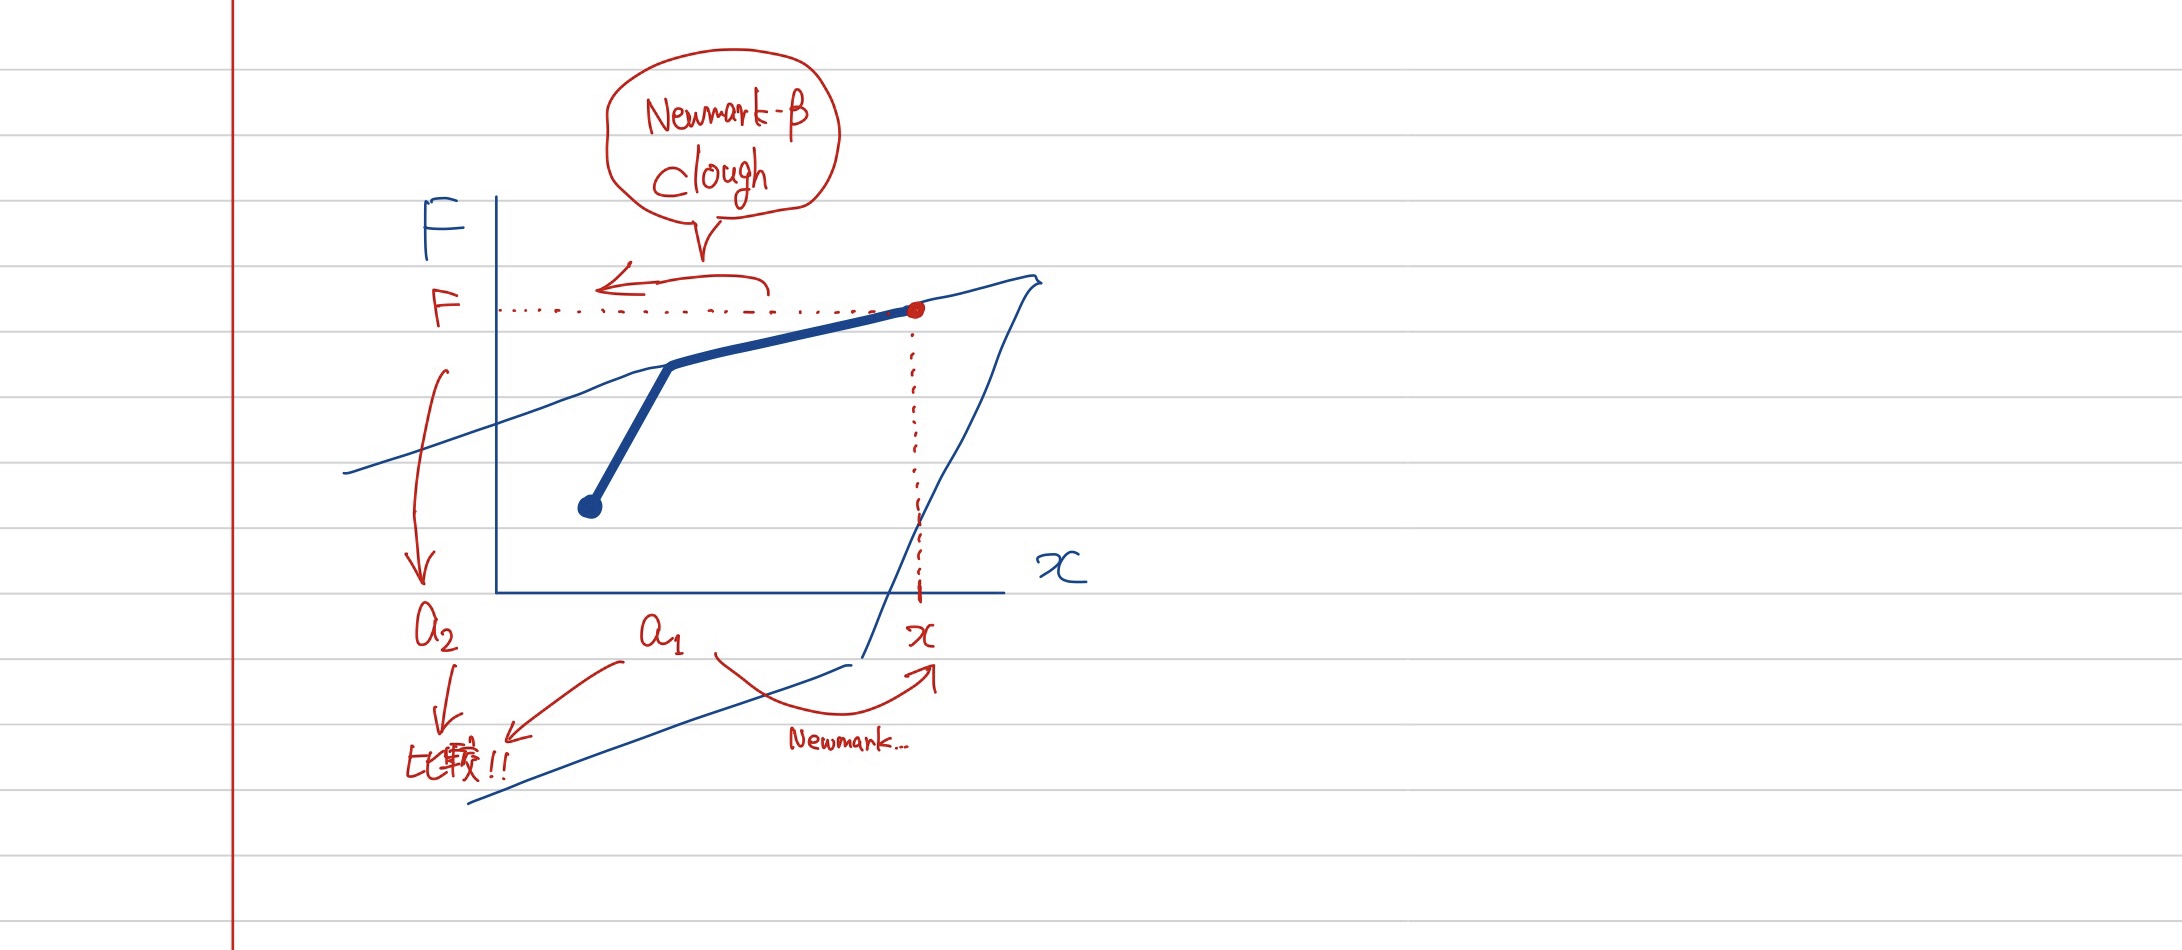 Newmark-β
Clough
F
F
x
a₂
a₁
x
Newmark...
比較!!